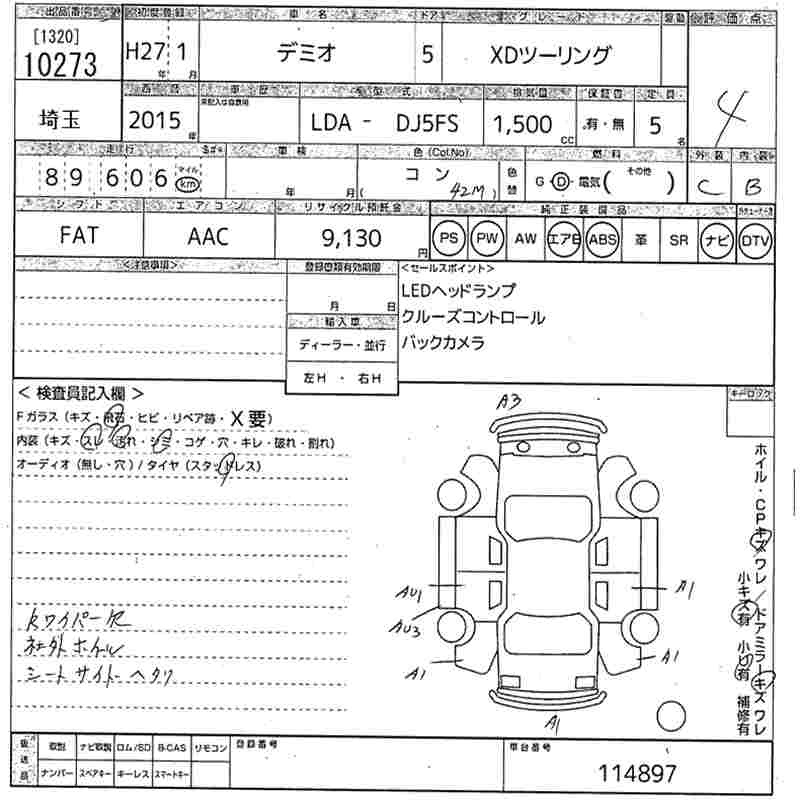 出品番号 初度登録 車名 ドア グレード 駆動 評価点
[1320]
10273 H27 1 デミオ 5 XDツーリング 4
年 月
西暦 車歴 型式 排気量 保証書 定員
埼玉 2015年 LDA - DJ5FS 1,500 CC 有・無 5 名
走行 車検 色(Col.No) 燃料 外装 内装
89,606 マイル km 年 月 コン ( 42M ) 色替 G・D・電気( その他 ) C B
シフト エアコン リサイクル預託金 純正装備品
FAT AAC 9,130 円 PS PW AW エアB ABS 革 SR ナビ DTV
<注意事項> 登録書類有効期限 <セールスポイント>
月 日 LEDヘッドランプ
輸入車 クルーズコントロール
ディーラー・並行 バックカメラ
左H ・ 右H
< 検査員記入欄 > キーロック
Fガラス (キズ・飛石・ヒビ・リペア跡・X要)
内装 (キズ・スレ・汚れ・シミ・コゲ・穴・キレ・破れ・割れ)
オーディオ (無し・穴) / タイヤ (スタッドレス)
A3
AU1
AU3
A1
A1
A1
A1
ホイル・CPキズワレ/ドアミラーキズワレ
小キズ有 小凹有 補修有
Rワイパー欠
社外ホイル
シートサイドヘタリ
後送品 取説 ナビ取説 ロム/SD B-CAS リモコン 登録番号 車台番号
ナンバー スペアキー キーレス スマートキー 114897